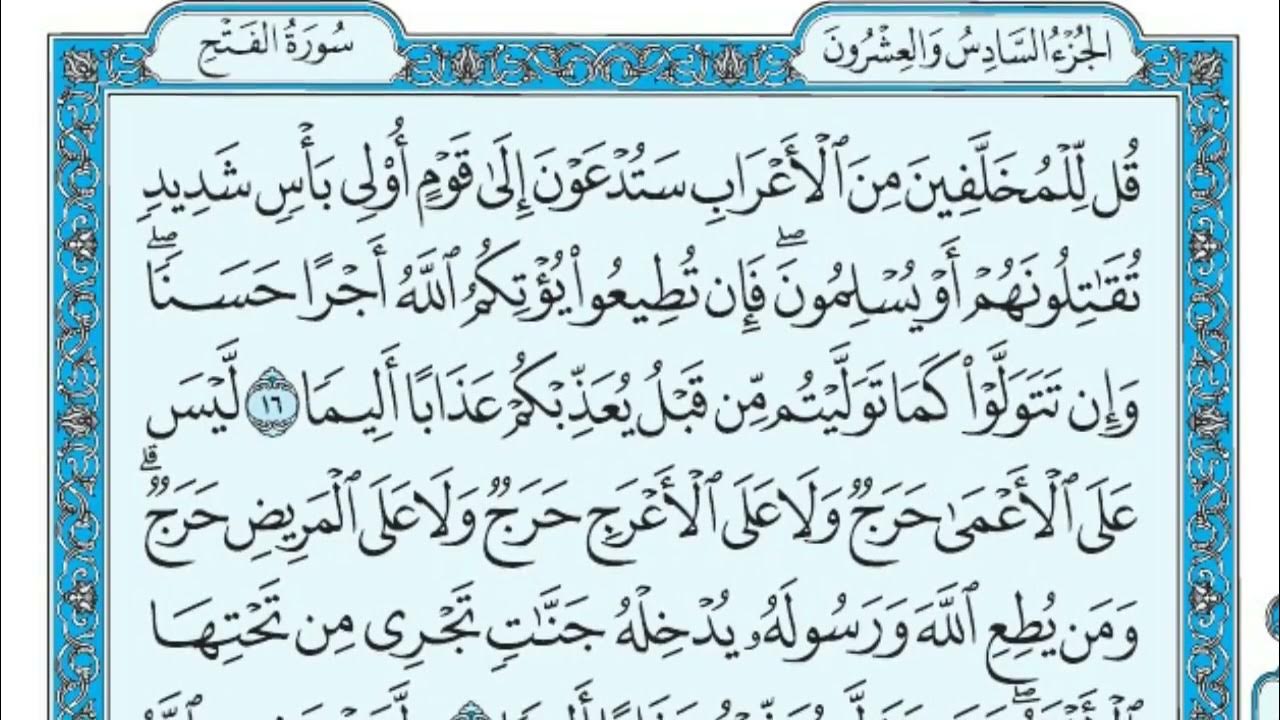 الجُزْءُ السَّادِسُ وَالعِشْرُونَ
سُورَةُ الفَتْحِ
قُل لِّلْمُخَلَّفِينَ مِنَ ٱلْأَعْرَابِ سَتُدْعَوْنَ إِلَىٰ قَوْمٍ أُوْلِى بَأْسٍ شَدِيدٍ
تُقَٰتِلُونَهُمْ أَوْ يُسْلِمُونَۖ فَإِن تُطِيعُوا۟ يُؤْتِكُمُ ٱللَّهُ أَجْرًا حَسَنًاۖ
وَإِن تَتَوَلَّوْا۟ كَمَا تَوَلَّيْتُم مِّن قَبْلُ يُعَذِّبْكُمْ عَذَابًا أَلِيمًا ١٦ لَّيْسَ
عَلَى ٱلْأَعْمَىٰ حَرَجٌ وَلَا عَلَى ٱلْأَعْرَجِ حَرَجٌ وَلَا عَلَى ٱلْمَرِيضِ حَرَجٌۗ
وَمَن يُطِعِ ٱللَّهَ وَرَسُولَهُۥ يُدْخِلْهُ جَنَّٰتٍ تَجْرِى مِن تَحْتِهَا